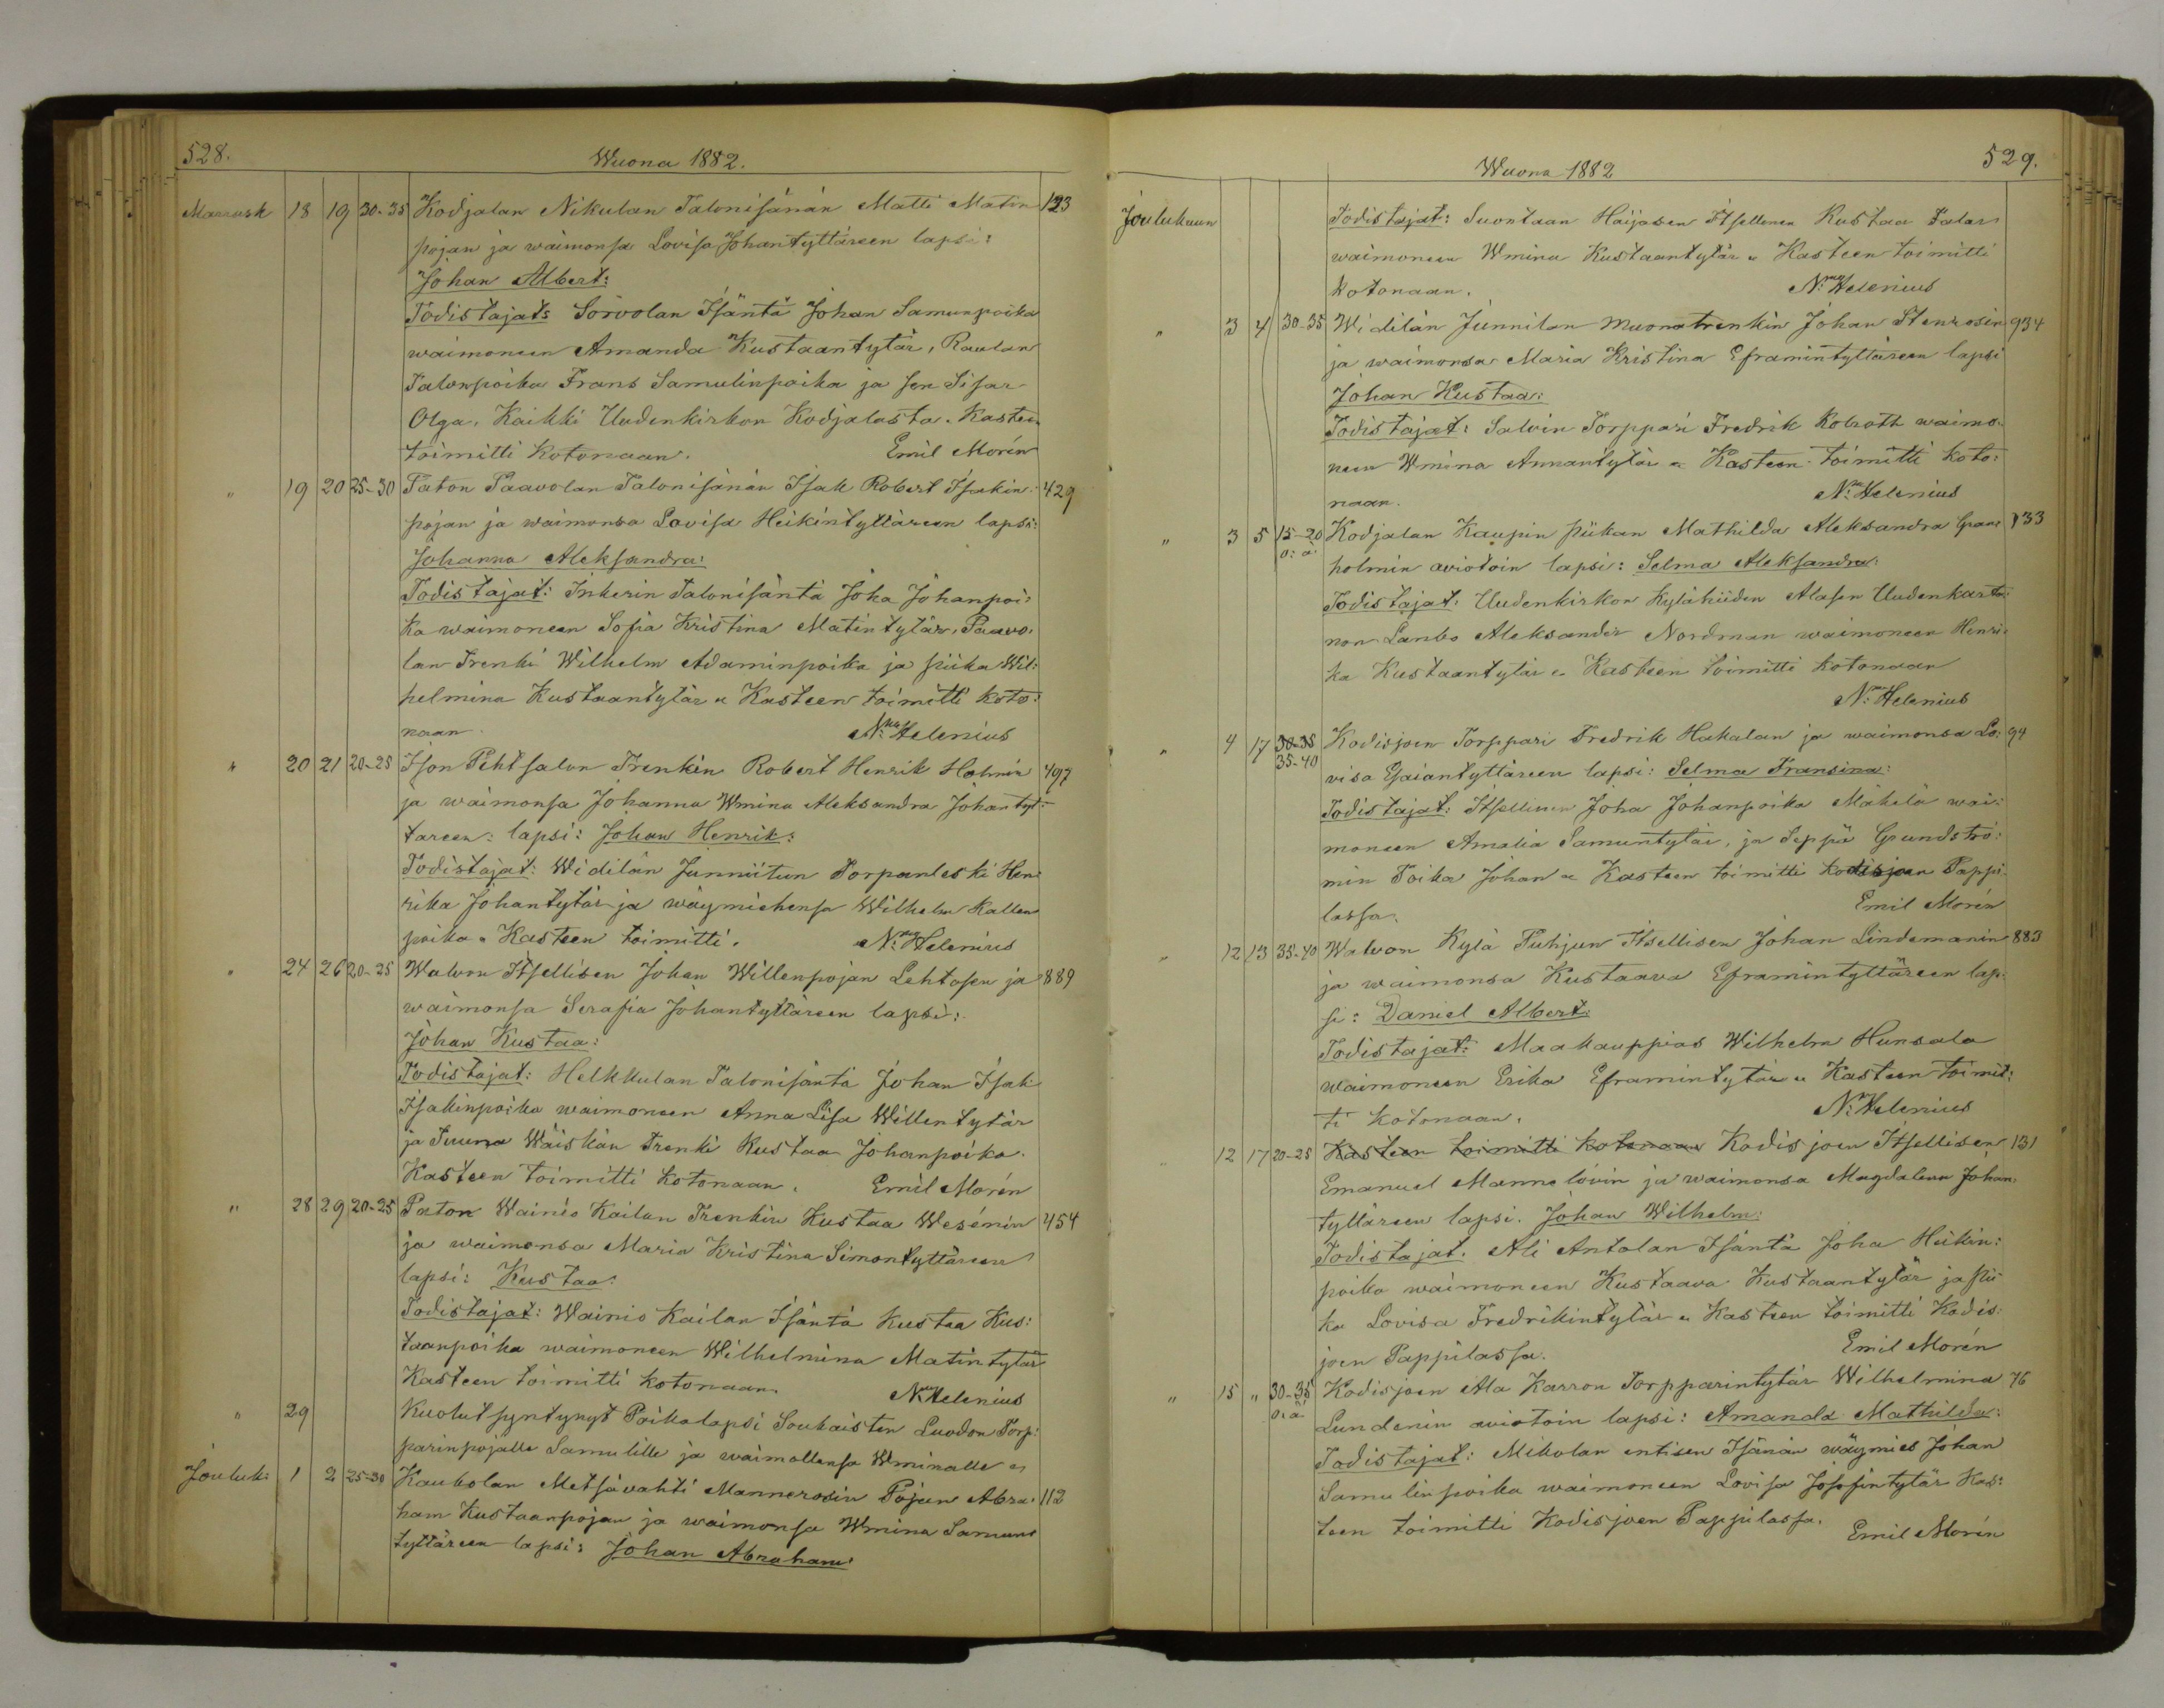 528.
Wuona 1882.
Marrask 18 19 30-35 Kodjalan Nikulan Talonisänän Matti Matin 123
pojan ja waimonsa Lovisa Johantyttäreen lapsi:
Johan Albert:
Todistajat: Sorvolan Isäntä Johan Samunpoika
waimoneen Amanda Kustaantytär, Raulan
Talonpoika Frans Samulinpoika ja sen Sisar
Olga. Kaikki Uudenkirkon Kodjalasta. Kasteen
toimitti kotonaan. Emil Morén
" 19 20 25-30 Taton Paavolan Talonisänän Isak Robert Isakin: 429
pojan ja waimonsa Lovisa Heikintyttäreen lapsi:
Johanna Aleksandra:
Todistajat: Inkerin Talonisäntä Joha Johanpoi:
ka waimoneen Sofia Kristina Matintytär, Paavo:
lan Trenki Wilhelm Adaminpoika ja piika Wil:
helmina Kustaantytär " Kasteen toimitti koto:
naan. N: Helenius
" 20 21 20-25 Ison Pehtsalon Trenkin Robert Henrik Holmin 497
ja waimonsa Johanna Wmina Aleksandra Johantyt:
täreen: lapsi: Johan Henrik:
Todistajat: Widilän Junnütun Torpanleski Hen:
rika Johantytär ja wäymiehensa Wilhelm Kallen
poika " Kasteen toimitti. N: Helenius
" 24 26 20-25 Walvon Itsellisen Johan Willenpojan Lehtosen ja 889
waimonsa Serafia Johantyttäreen lapsi:
Johan Kustaa:
Todistajat: Helkkulan Talonisäntä Johan Isak
Isakinpoika waimoneen Anna Lisa Willentytär
ja Wäiskän trenki Kustaa Johanpoika.
Kasteen toimitti kotonaan. Emil Morén
" 28 29 20-25 Paton Wainio Kailan Trenkin Kustaa Wesénin 454
ja waimonsa Maria Kristina Simontyttäreen
lapsi: Kustaa:
Todistajat: Wainio Kailan Isäntä Kustaa Kus:
taanpoika waimoneen Wilhelmina Matintytär
Kasteen toimitti kotonaan. N: Helenius
" 29 Kuolut syntynyt Poikalapsi Soukaisten Luodon Torp:
parinpojalle Samulille ja waimollensa Wminalle "
Jouluk: 1 2 25-30 Kaukolan Metsävahti Mannerosin Pojan Abra: 112
ham Kustaanpojan ja waimonsa Wmina Samuns
tyttäreen lapsi: Johan Abraham:
529.
Wuona 1882
Joulukuun Todistajat: Suontaan Haijasen Itsellinen Kustaa Salas
waimoneen Wmina Kustaantytär " Kasteen toimitti
kotonaan. N: Helenius
" 3 4 30-35 Widilän Junnilan Muonatrenkin Johan Stenrosin 934
ja waimonsa Maria Kristina Eframintyttäreen lapsi
Johan Kustaa:
Todistajat: Salvin Torppari Fredrik Robroth waimo:
neen Wmina Annantytär " Kasteen toimitti koto:
naan. N: Helenius
" 3 5 15-20 Kodjalan Kaupin piikan Mathilda Aleksandra Gran: 133
o: ä: holmin aviotoin lapsi: Selma Aleksandra:
Todistajat: Uudenkirkon Kylähiiden Alasen Uudenkarta:
non Lanbo Aleksander Nordman waimoneen Henri:
ka Kustaantytär " Kasteen toimitti kotonaan
N: Helenius
" 4 17 30-35 Kodisjoen Torppari Fredrik Hakalan ja waimonsa Lo: 94
35-40 visa Esaiantyttäreen lapsi: Selma Fransina:
Todistajat: Itsellinen Joha Johanpoika Mäkelä wai:
moneen Amalia Samuntytär, ja Seppä Grundströ:
min Poika Johan " Kasteen toimitti kodisjoen Pappi
lassa. Emil Morén
" 12 13 35-40 Walvon Kylä Puhjun Itsellisen Johan Lindemanin 883
ja waimonsa Kustaava Eframintyttäreen lap:
si: Daniel Albert:
Todistajat: Maakauppias Wilhelm Hunsala
waimoneen Erika Eframintytär " Kasteen toimit:
ti kotonaan. N: Helenius
" 12 17 20-25 Kasteen toimitti kotonaan Kodisjoen Itsellisen 131
Emanuel Mannelövin ja waimonsa Magdalena Johan:
tyttäreen lapsi. Johan Wilhelm:
Todistajat. Ali Antolan Isäntä Joha Heikin:
poika waimoneen Kustaava Kustaantytär ja pii
ka Lovisa Fredrikintytär " Kasteen toimitti Kodis:
joen Pappilassa. Emil Morén
" 15 " 30-35 Kodisjoen Ala Karron Torpparintytär Wilhelmina 76
o: ä: Lundenin aviotoin lapsi: Amanda Mathilda:
Todistajat: Mikolan entisen Isänän wäymies Johan
Samulinpoika waimoneen Lovisa Josefintytär Kas:
teen toimitti Kodisjoen Pappilassa. Emil Morén